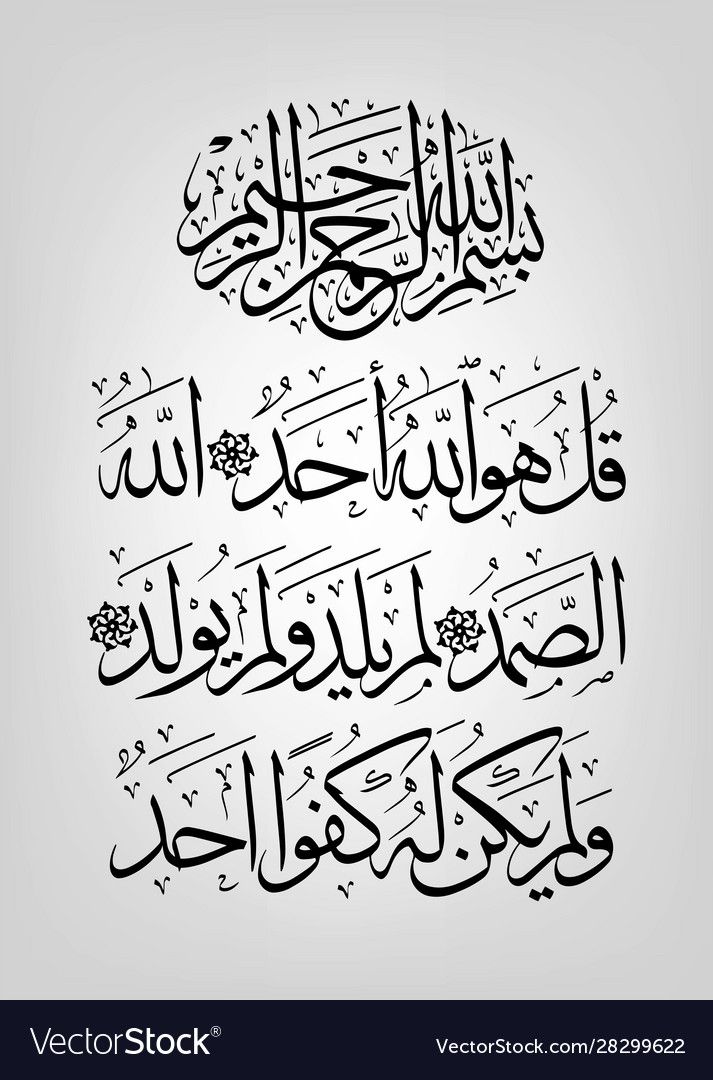 بِسْمِ اللَّهِ الرَّحْمَنِ الرَّحِيمِ
قُلْ هُوَ اللَّهُ أَحَدٌ ۝ اللَّهُ
الصَّمَدُ ۝ لَمْ يَلِدْ وَلَمْ يُولَدْ ۝
وَلَمْ يَكُنْ لَهُ كُفُوًا أَحَدٌ
VectorStock® VectorStock.com/28299622